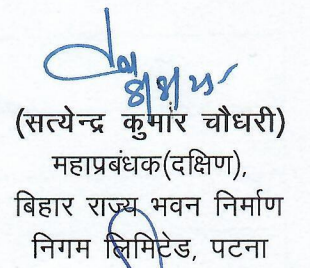 8/8/25
(सत्येन्द्र कुमार चौधरी)
महाप्रबंधक(दक्षिण),
बिहार राज्य भवन निर्माण
निगम लिमिटेड, पटना